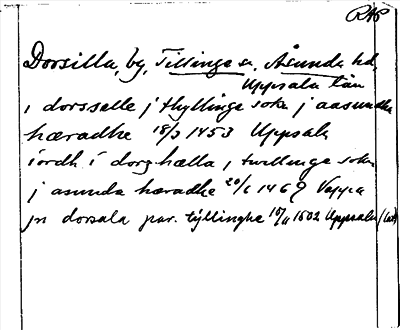 RAP
Dorsilla, by, Tillinge sn, Åsunda hd,
Uppsala län
i dorsselle j thyllinge sokn j aasunda
hæradhe 18/3 1453 Uppsala
iordh i dorghælla, twllinge sokn
j asunda hæradhe 20/6 1469 Vappa
jn dorsala par. tyllinghe 10/11 1502 Uppsala